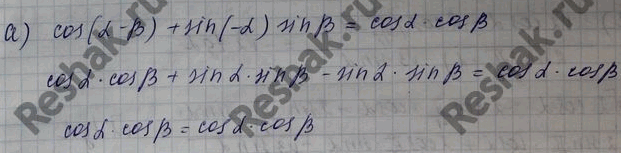 а) cos(α-β) + sin(-α) sinβ = cosα · cosβ
cosα · cosβ + sinα · sinβ - sinα · sinβ = cosα · cosβ
cosα · cosβ = cosα · cosβ
Reshak.ru
Reshak.ru
Reshak.ru